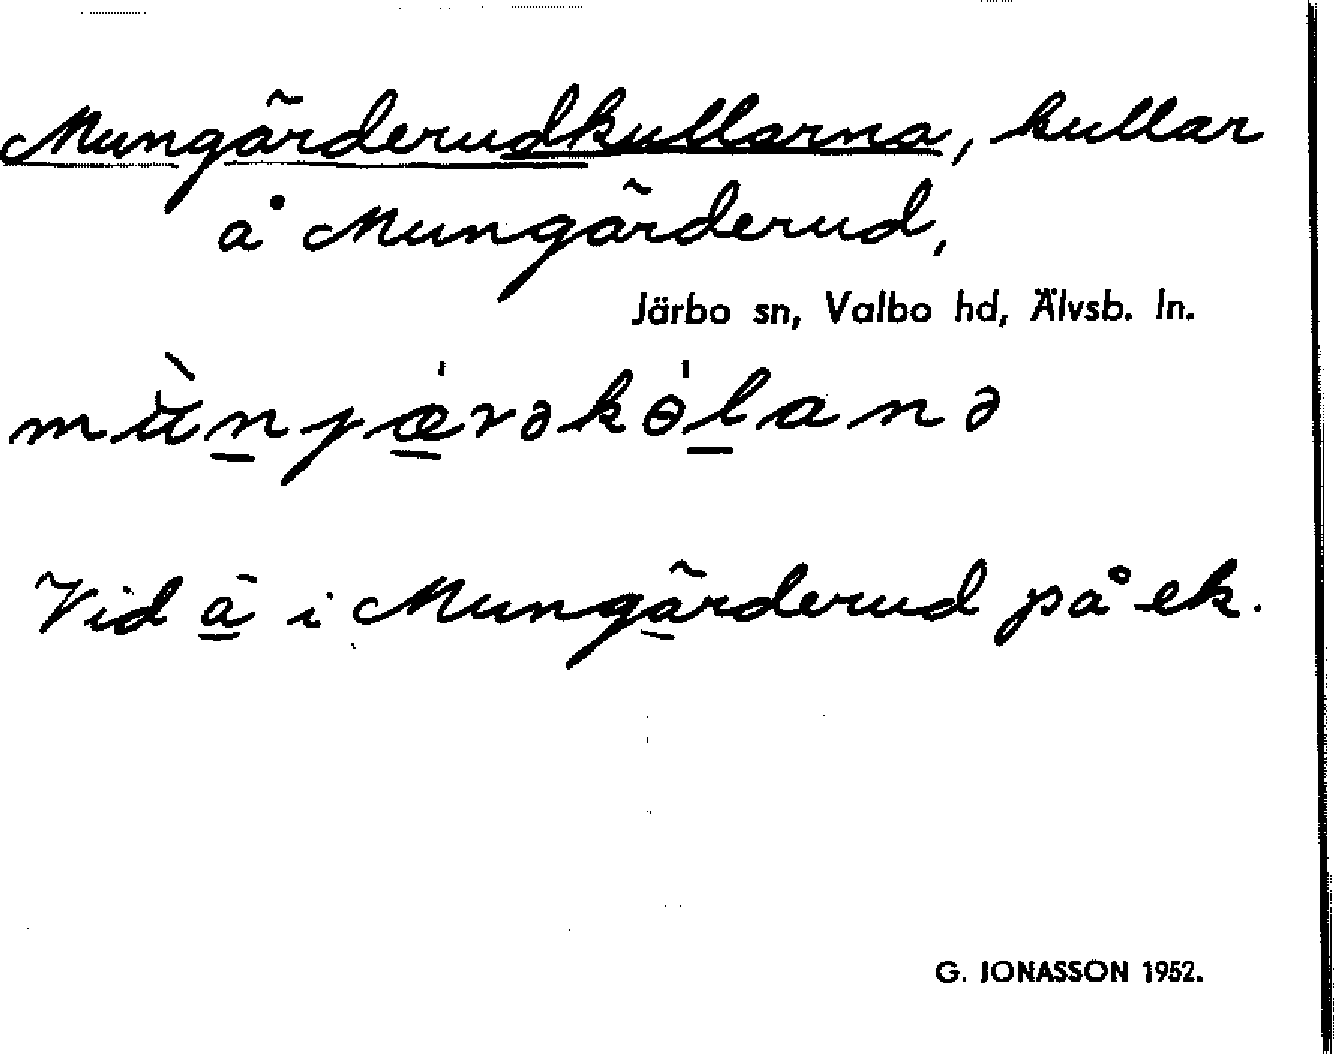 Mungärderudkullarna, kullar
å Mungärderud,
Järbo sn, Valbo hd, Älvsb. ln.
Vid ä i Mungärderud på ek.
G. JONASSON 1952.